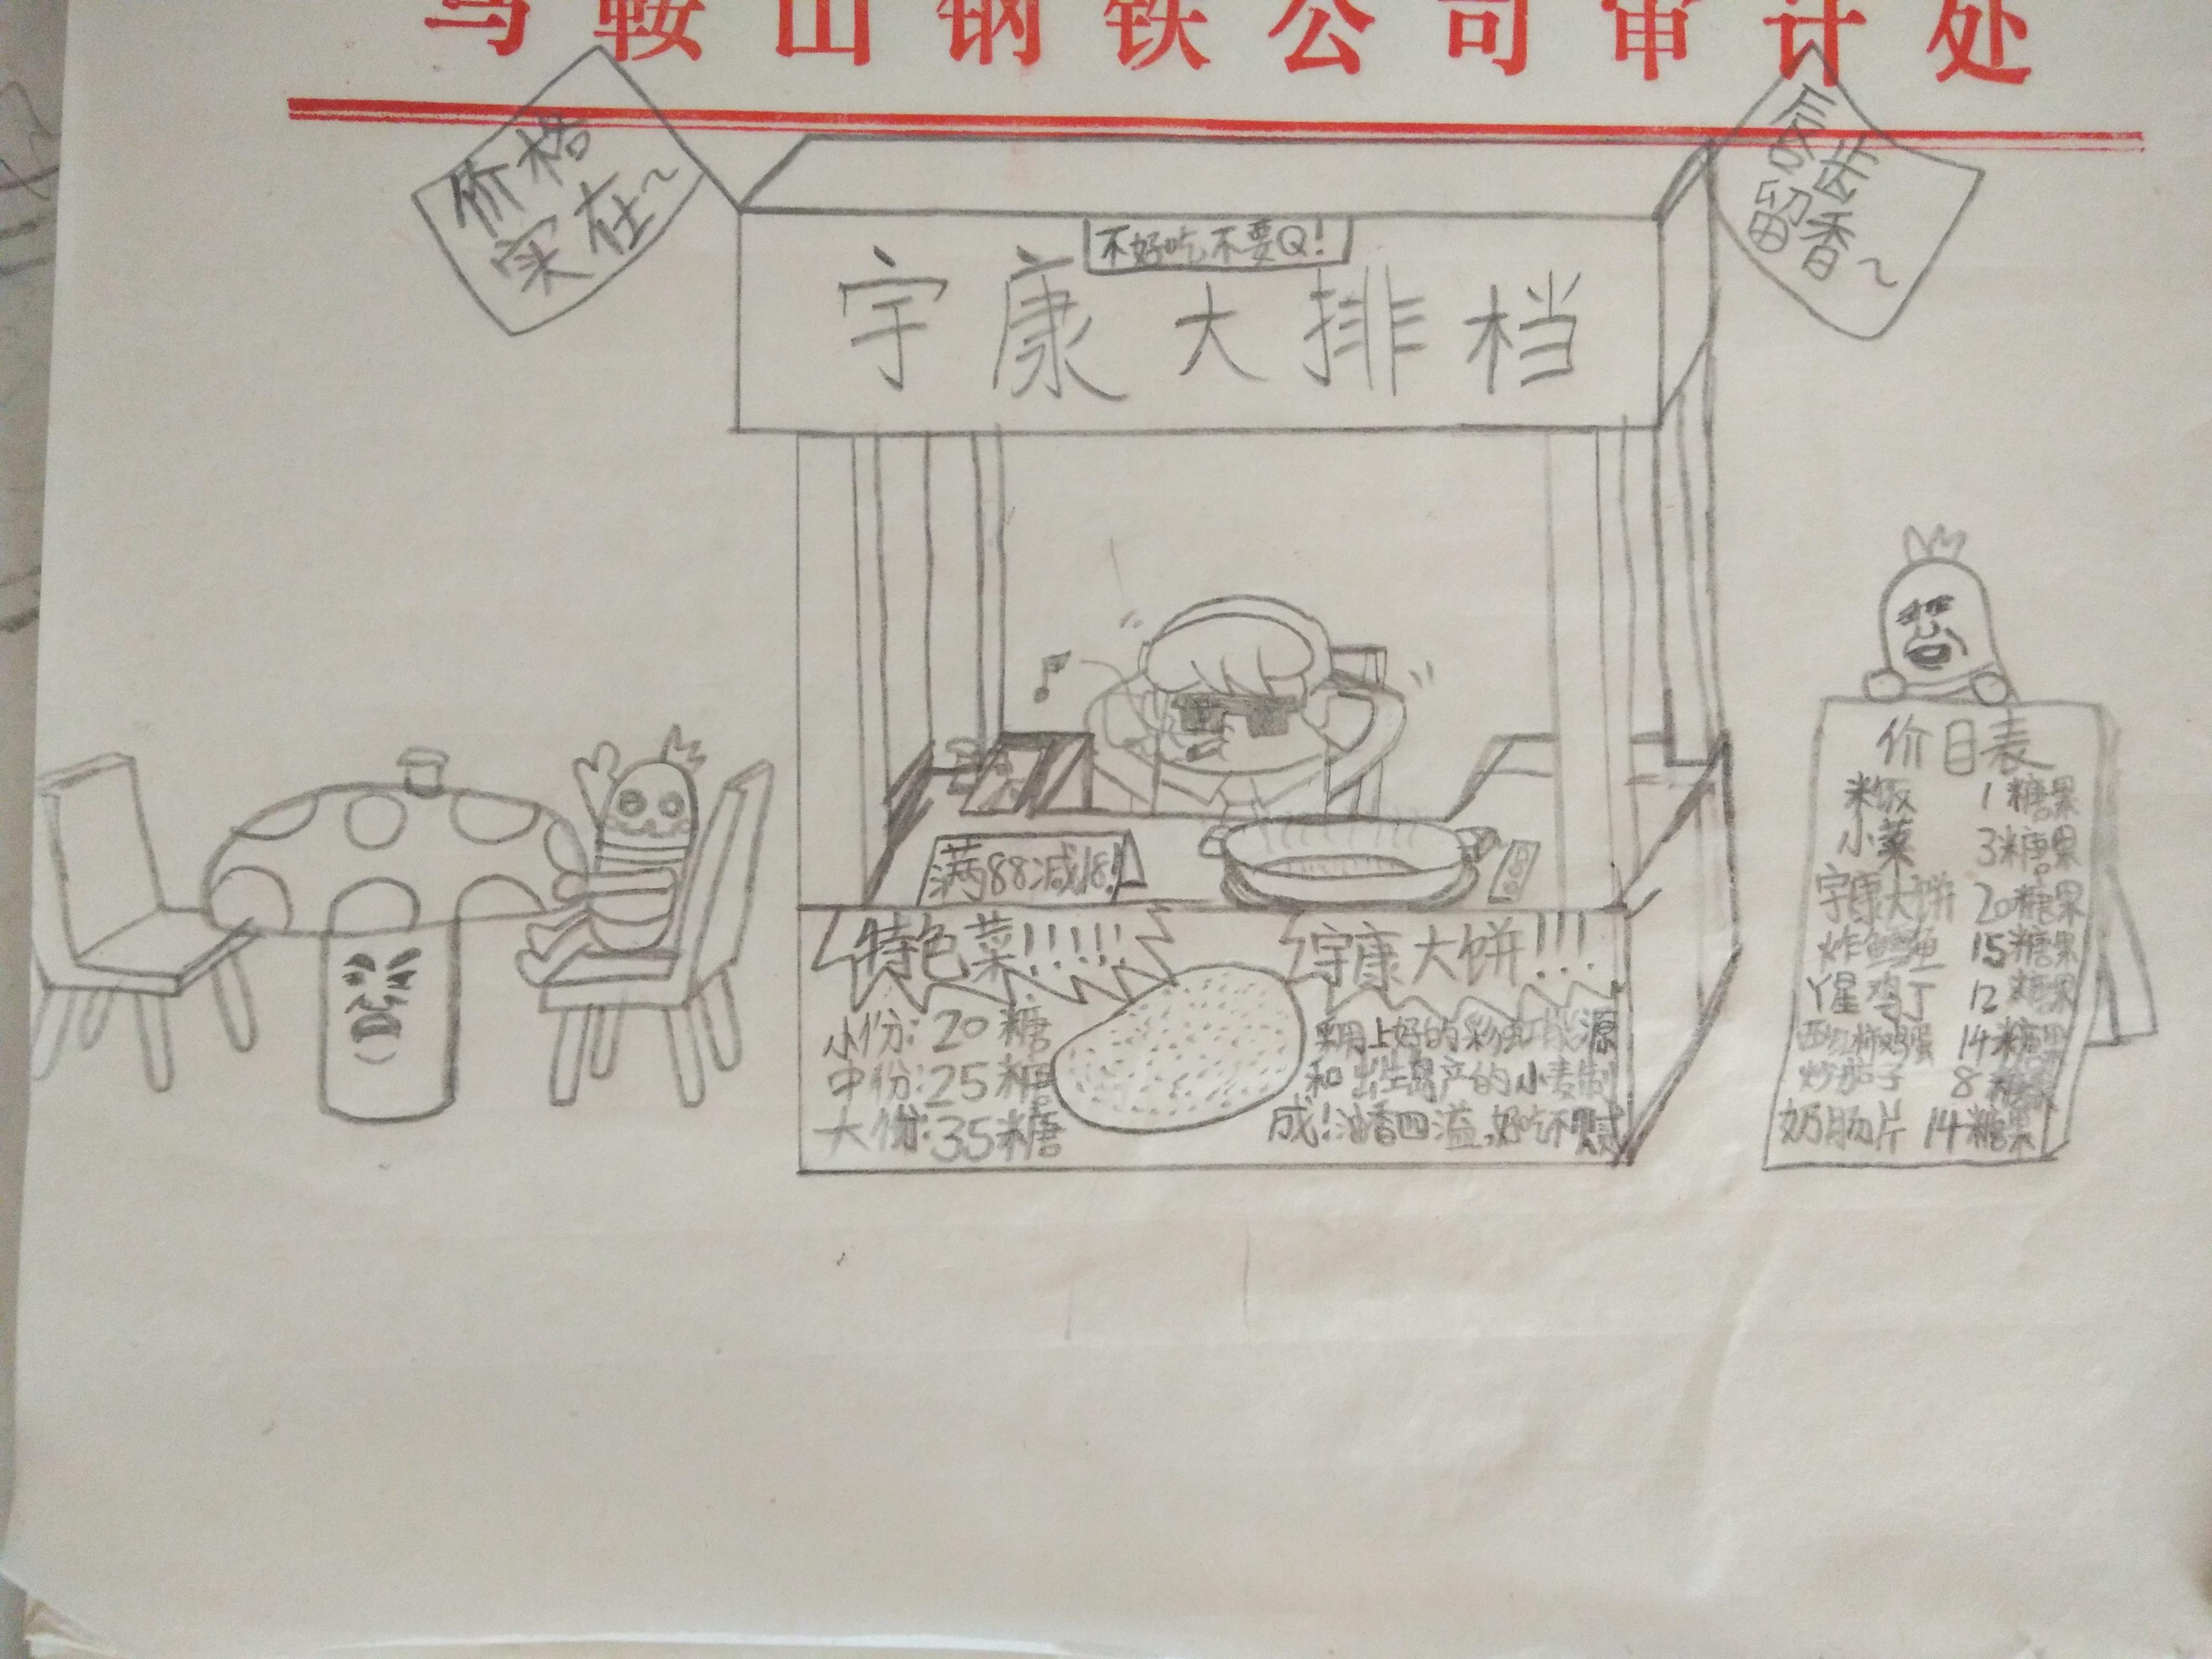 马鞍山钢铁公司审计处
价格
实在~
唇齿
留香~
不好吃,不要Q!
宇康大排档
满88减18!
特色菜!!!!!
小份:20糖
中份:25糖
大份:35糖
宇康大饼!!!
采用上好的彩虹能源
和出生岛产的小麦制
成!油香四溢,好吃不腻
价目表
米饭 1糖果
小菜 3糖果
宇康大饼 20糖果
炸鱼 15糖果
鸡丁 12糖果
西红柿鸡蛋 14糖果
炒茄子 8糖果
奶肠片 14糖果